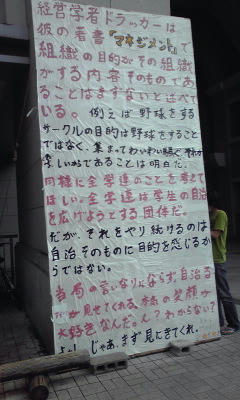 経営学者ドラッカーは
彼の著書『マネジメント』で
組織の目的がその組織
がする内容そのものであ
ることはまずないと述べて
いる。例えば野球をする
サークルの目的は野球をすること
ではなく、集まってわいわい騒ぐ、それが
楽しいからであることは明白だ。
同様に全学連のことを考えて
ほしい。全学連は学生の自治
を広げようとする団体だ。
だが、それをやり続けるのは
自治そのものに目的を感じるか
らではない。
当局の言いなりにならず、自治る
だが見せてくれる、本気の笑顔が
大好きなんだ。ん?わからない?
よし、じゃあ、まず見にきてくれ。